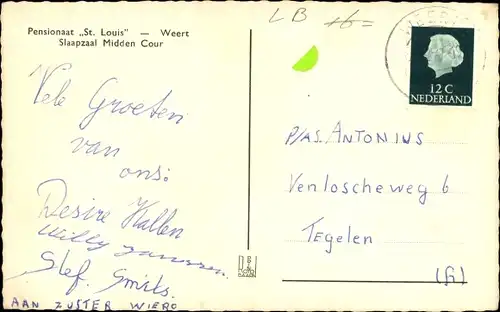 Pensionaat „St. Louis" — Weert
Slaapzaal Midden Cour
LB 16=
12 C
NEDERLAND
Vele Groeten
van
ons:
Desire Hallen
Willy Janssen.
Stef. Smits.
AAN ZUSTER WIERO
P/AS. ANTONIUS
Venloscheweg 6
Tegelen
(h)